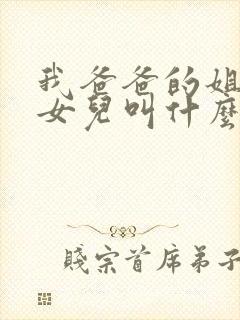 我爸爸的姐
女兒叫什麼
賤宗首席弟子